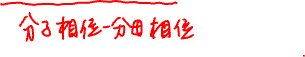 分子相位-分母相位